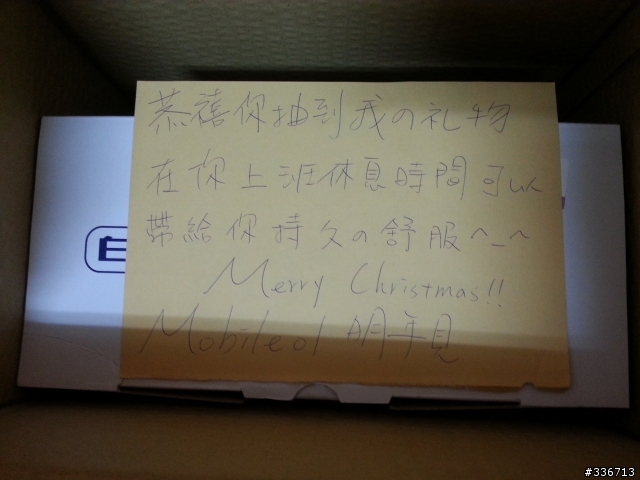 恭禧你抽到我の礼物
在你上涯休息時間可以
帶給你持久の舒服^_^
Merry Christmas!!
Mobile01 明年見
自
#336713